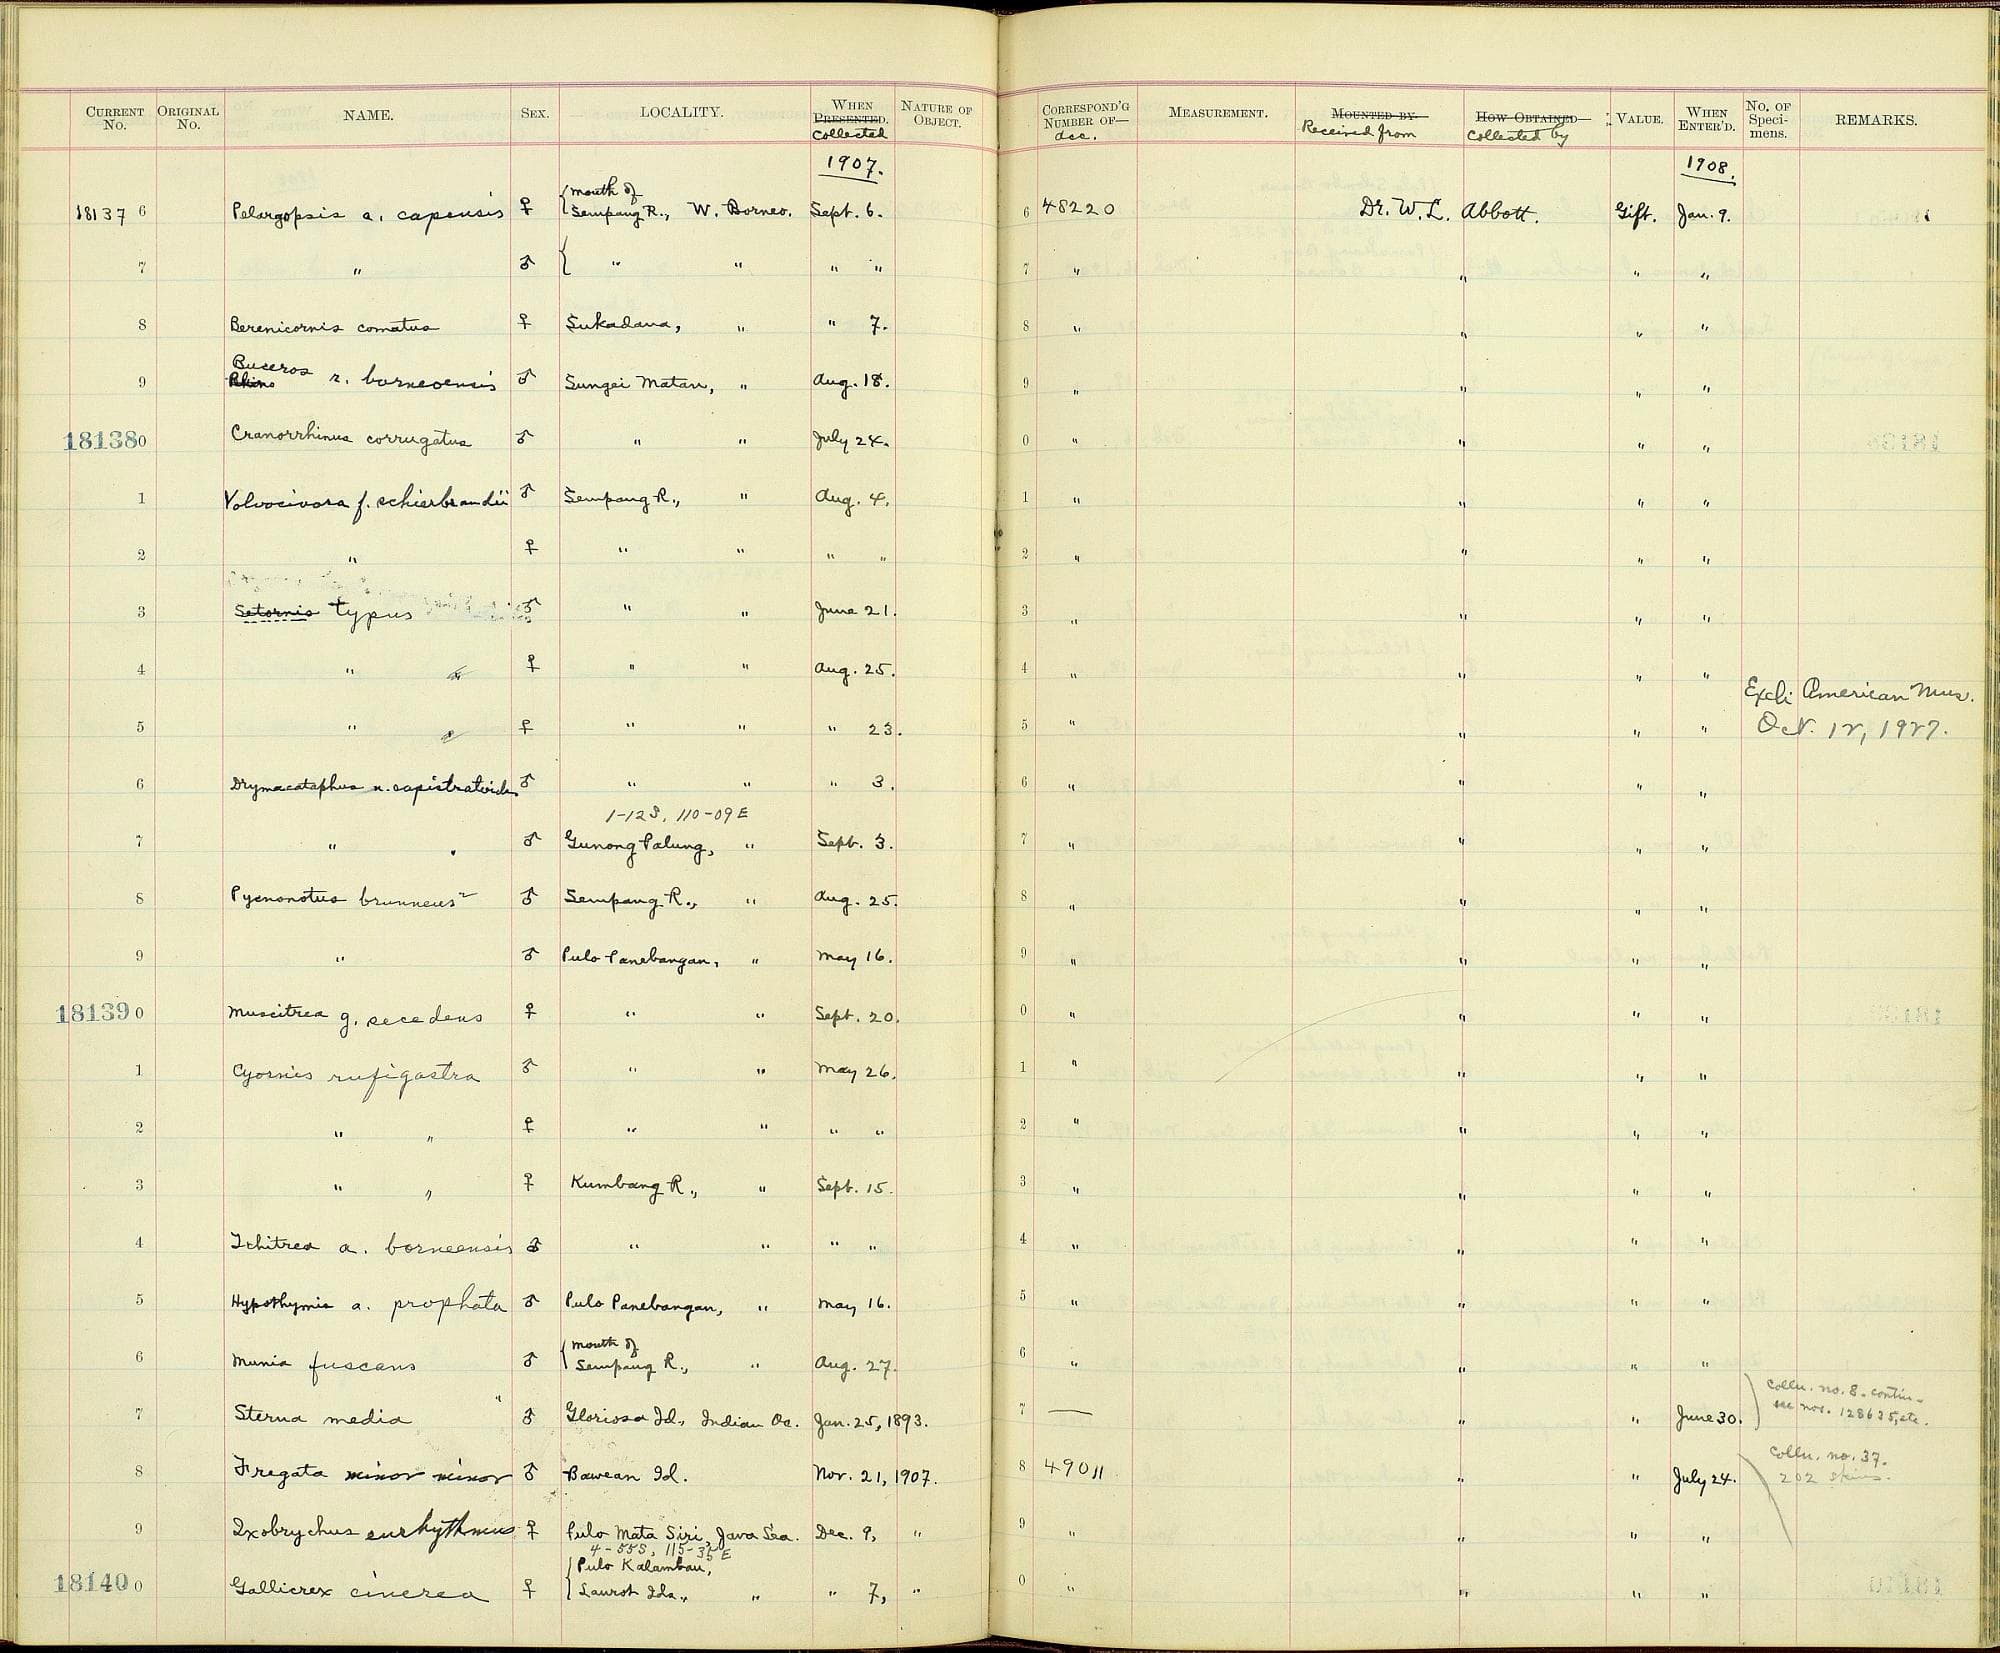 CURRENT No. ORIGINAL No. NAME. SEX. LOCALITY. WHEN PRESENTED. Collected NATURE OF OBJECT. CORRESPOND'G NUMBER OF— acc. MEASUREMENT. MOUNTED BY Received from HOW OBTAINED Collected by VALUE. WHEN ENTER'D. No. OF Specimens. REMARKS.
1907. 1908.
18137 6 Pelargopsis a. capensis ♀ { mouth of Sempang R., W. Borneo. Sept. 6. 6 48220 Dr. W. L. Abbott. Gift. Jan. 9.
7 " ♂ { " " " " 7 " " " "
8 Berenicornis comatus ♀ Sukadana, " " 7. 8 " " " "
9 Buceros Rhino r. borneoensis ♂ Sungei Matan, " Aug. 18. 9 " " " "
18138 0 Cranorrhinus corrugatus ♂ " " July 24. 0 " " " "
1 Volvocivora f. schierbrandii ♂ Sempang R., " Aug. 4. 1 " " " "
2 " ♀ " " " " 2 " " " "
3 Setornis typus ♂ " " June 21. 3 " " " "
4 " ♀ " " Aug. 25. 4 " " " "
Exch American Mus.
5 " ♀ " " " 23. 5 " " " " Oct. 12, 1927.
6 Drymacataphus n. capistratoides ♂ " " " 3. 6 " " " "
1-12 S, 110-09 E
7 " ♂ Gunong Palung, " Sept. 3. 7 " " " "
8 Pycnonotus brunneus ♂ Sempang R., " Aug. 25. 8 " " " "
9 " ♂ Pulo Panebangan, " May 16. 9 " " " "
18139 0 Muscitrea g. secedens ♀ " " Sept. 20. 0 " " " "
1 Cyornis rufigastra ♂ " " May 26. 1 " " " "
2 " " ♀ " " " " 2 " " " "
3 " " ♀ Kumbang R., " Sept. 15. 3 " " " "
4 Tchitrea a. borneensis ♂ " " " " 4 " " " "
5 Hypothymis a. prophata ♂ Pulo Panebangan, " May 16. 5 " " " "
6 Munia fuscans ♂ { mouth of Sempang R., " Aug. 27. 6 " " " "
7 Sterna media ♂ Gloriosa Id., Indian Oc. Jan. 25, 1893. 7 — " " June 30. Colln. no. 8. contin- see nos. 128635, etc.
8 Fregata minor minor ♂ Bawean Id. Nov. 21, 1907. 8 49011 " " July 24. Colln. no. 37. 202 skins.
9 Ixobrychus eurhythmus ♀ Pulo Mata Siri, Java Sea. Dec. 9, " 9 " " " "
4-55 S, 115-35 E
18140 0 Gallicrex cinerea ♀ { Pulo Kalambau, Laurot Ids., " " 7, " 0 " " " "